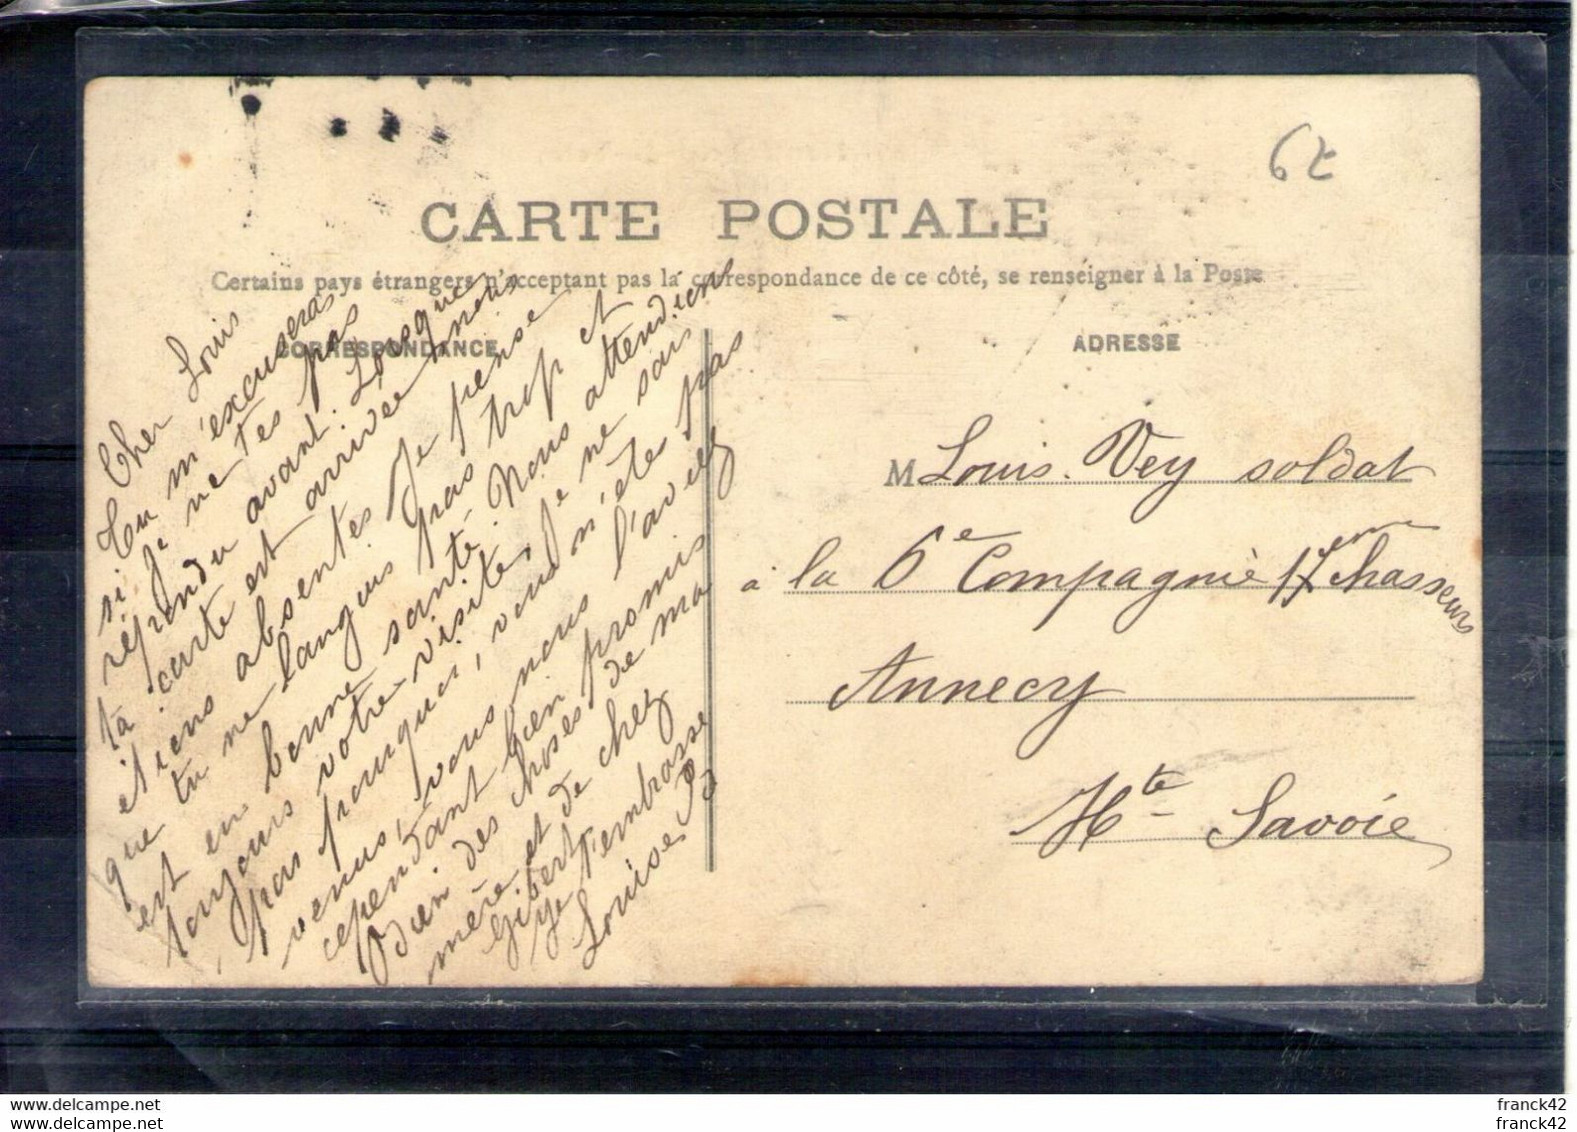 6€
CARTE POSTALE
Certains pays étrangers n'acceptant pas la correspondance de ce côté, se renseigner à la Poste
CORRESPONDANCE
ADRESSE
Cher Louis
Tu m'excuseras
si je ne t'es pas
répondu avant. Lorsque
ta carte est arrivée nous
étions absentes Je pense
que tu ne languis pas trop et
est en bonne santé. Nous attendions
toujours votre visite, je ne sais
pas pourquoi, vous n'étes pas
venus, vous nous l'aviez
cependant bien promis
Bien des choses de ma
mère et de chez
Gibert
Je t'embrasse
Louise
M Louis. Vey soldat
à la 6e Compagnie 17eme Chasseurs
Annecy
Hte Savoie
www.delcampe.net
www.delcampe.net
franck42
franck42